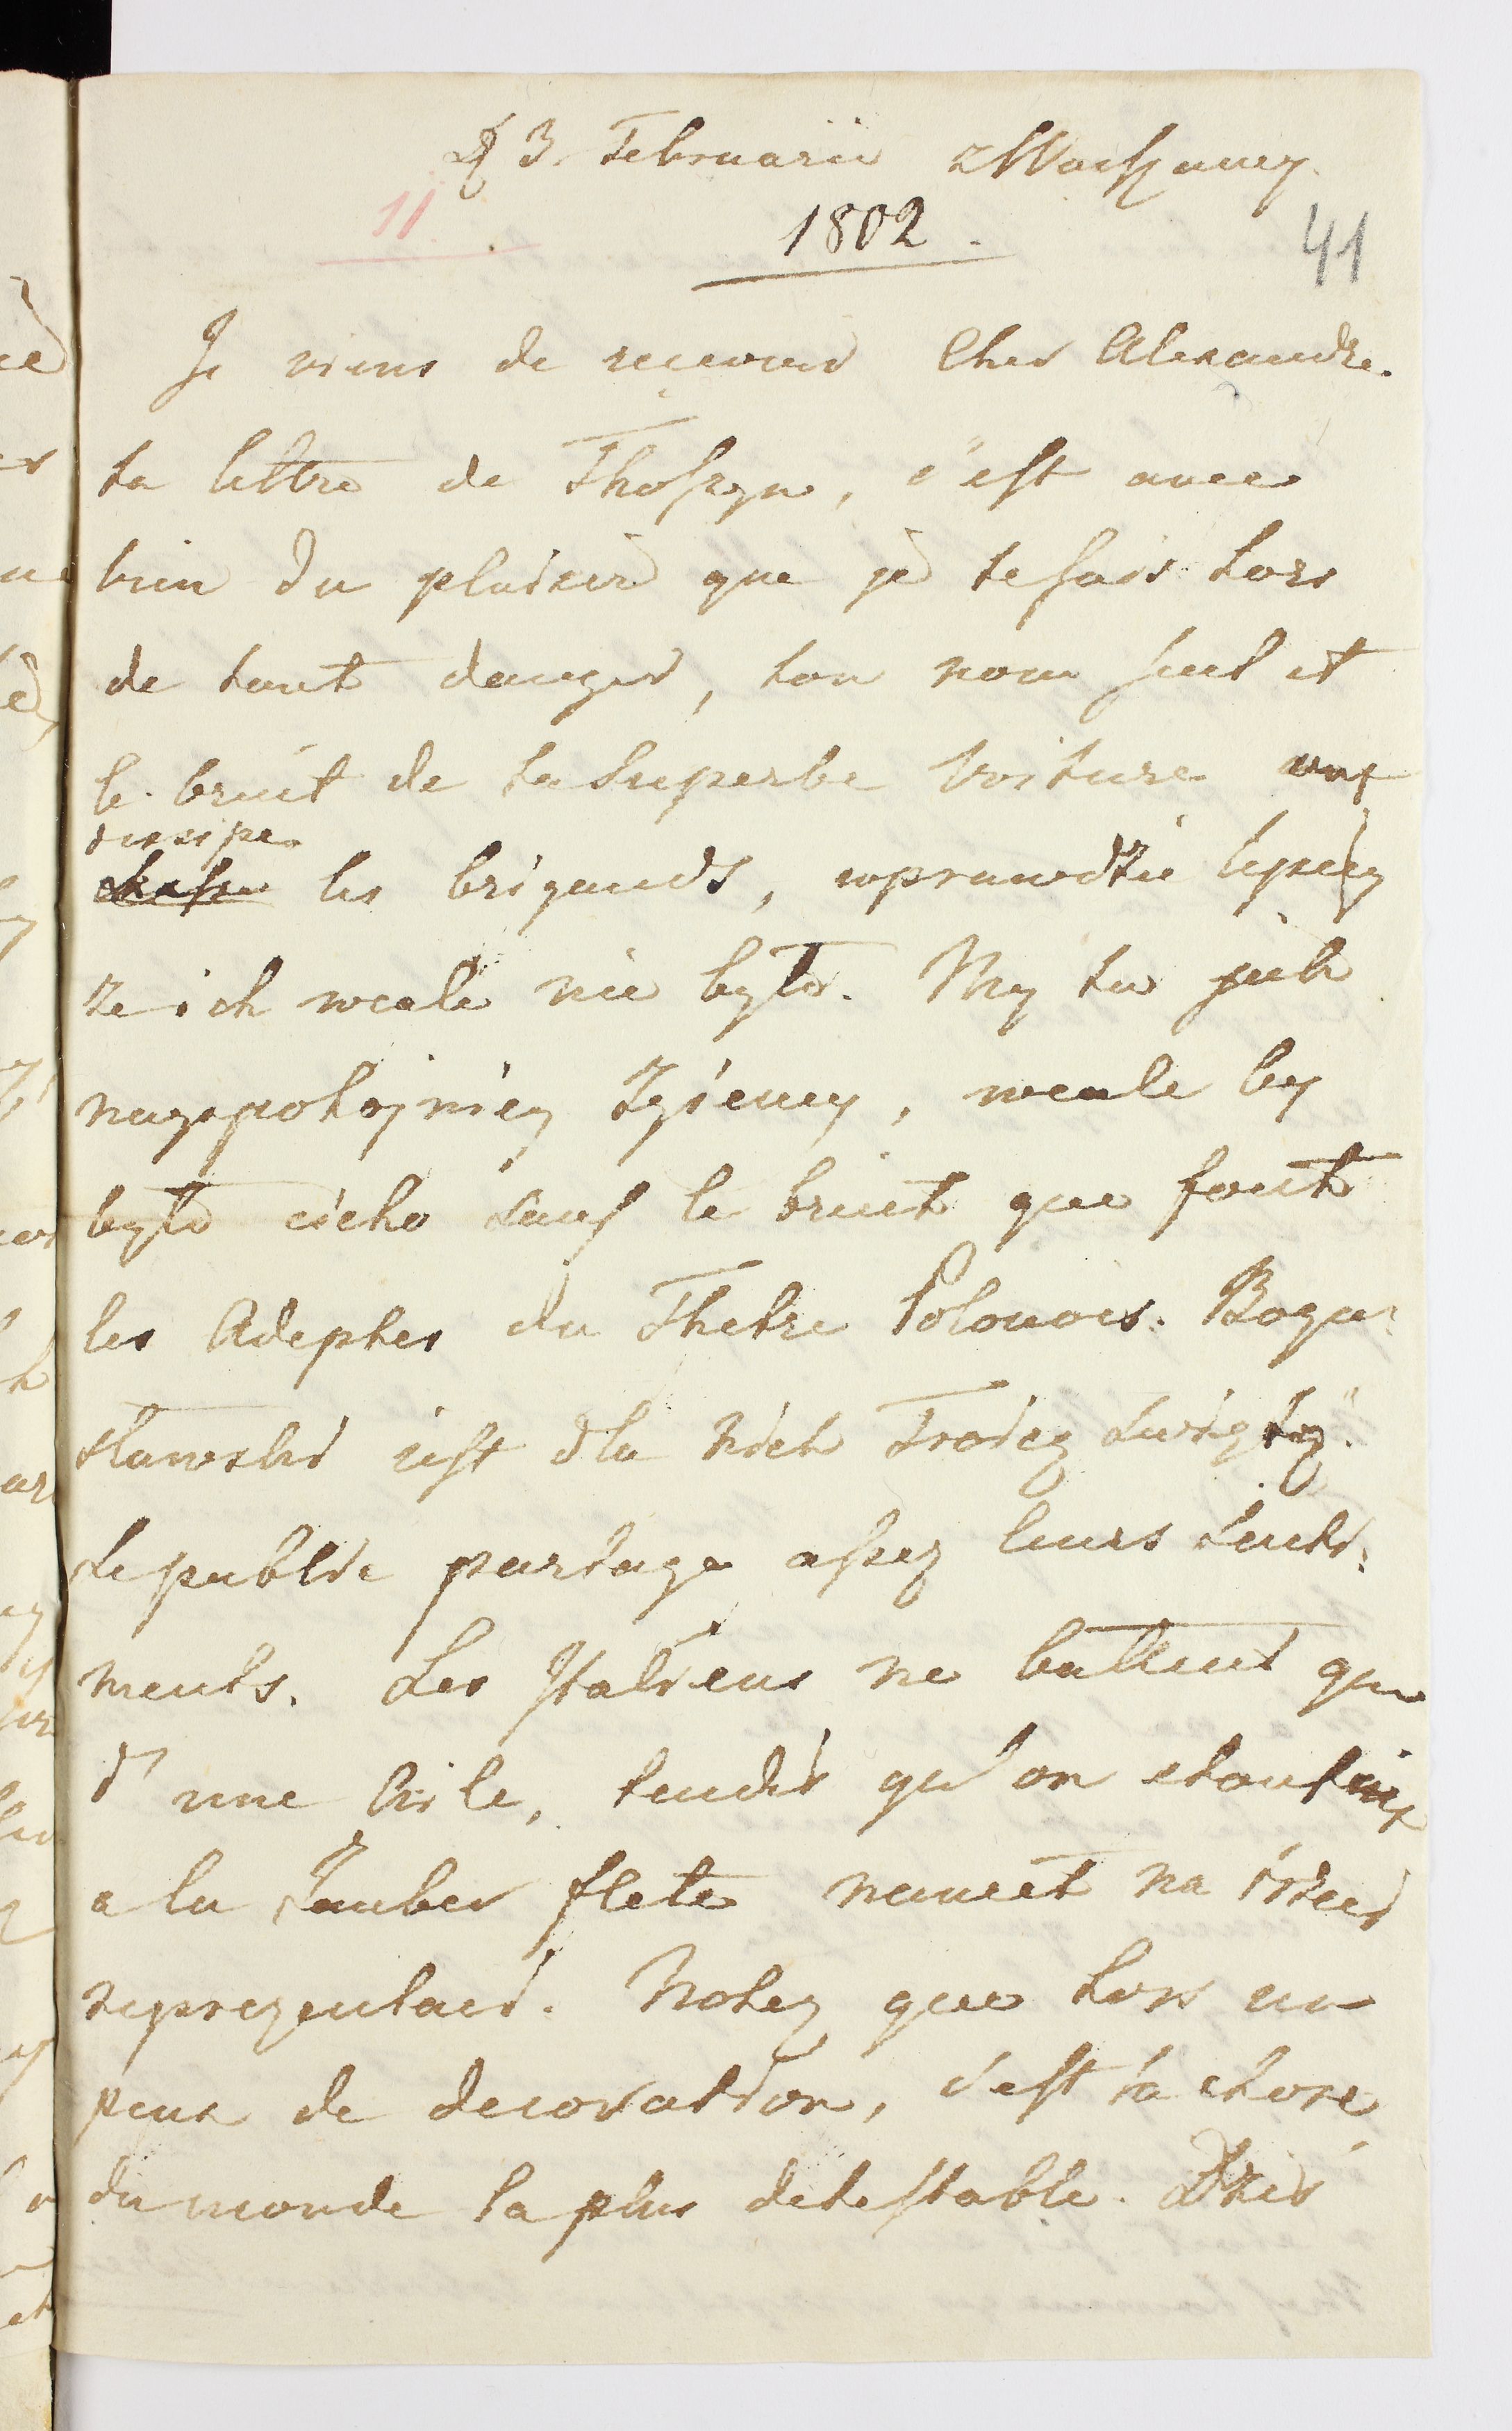 D 3. Februarii z Warszawy.
11.
1802.
41
Je viens de reçevoir Cher Alexandre.
ta lettre de Tykoczyn, c'est avec
bien du plaisir que je te sais hors
de tout danger, ton nom seul et
le bruit de ta Superbe Voiture ont
dissipe
les brigands, wprawdzie lipiey
ze ich wcale nie było. My tu jak
nayspokoyniey żyiemy, wcale by
było cicho sauf le bruit que font
les Adeptes du Thetre Polonois. Bogu:
sławski iest dla nich Troicą Swiętą.
Le public partage assez leurs Senti:
ments. Les Italiens ne battent que
d'une Aile, tandis qu'on etouffe
a la Zauber flete nawet na trzeci
reprezentacii. Notez que hors un
peux de decoration, c'est la chose
du monde la plus detestable. Dzis